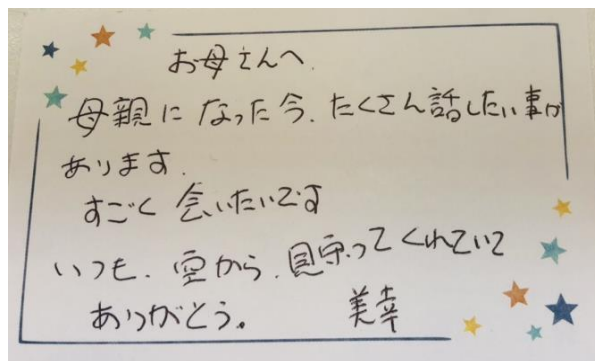 お母さんへ.
母親になった今、たくさん話したい事が
あります.
すごく会いたいです
いつも、空から、見守ってくれていて
ありがとう。
美幸